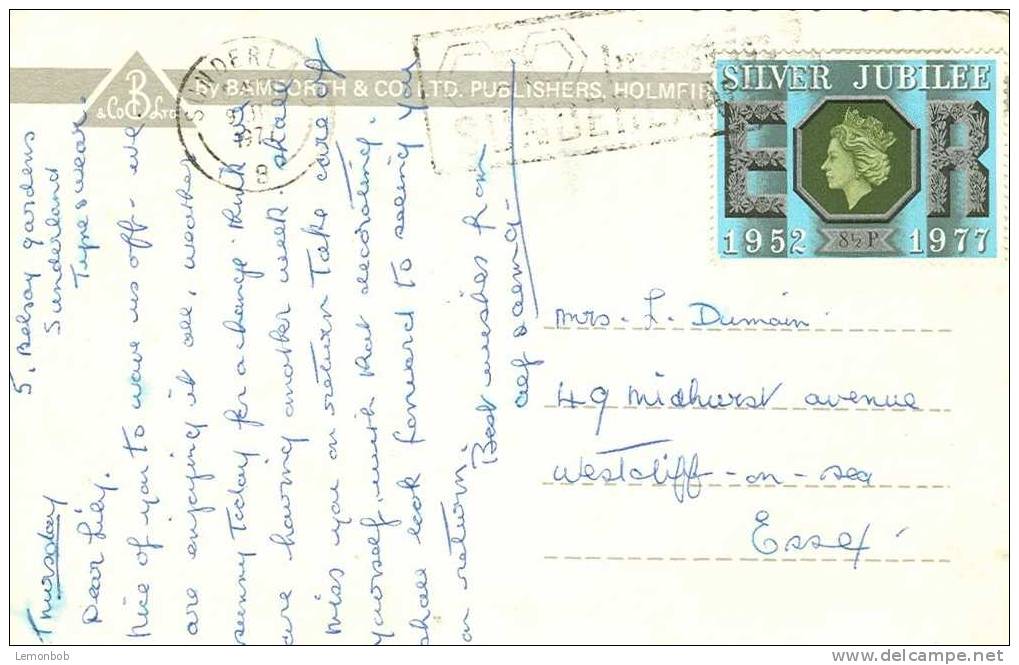 by BAMFORTH & CO. LTD. PUBLISHERS, HOLMFIR
B
& Co Ltd
SUNDERL
1977
SUNDERLAND
SILVER JUBILEE
E R
1952 8½P 1977
5, Belsay gardens
Sunderland
Tyne & wear
Thursday
Dear Lily.
Nice of you to wave us off - we
are enjoying it all, weather
sunny today for a change. think we
are having another week. shall
miss you on return Take care of
yourself, with that decorating.
shall look forward to seeing you
on return.
Best wishes from
alf &
mrs. L. Dumain.
49 midhurst avenue
Westcliff-on-sea
Essex
Lemonbob
delcampe.net